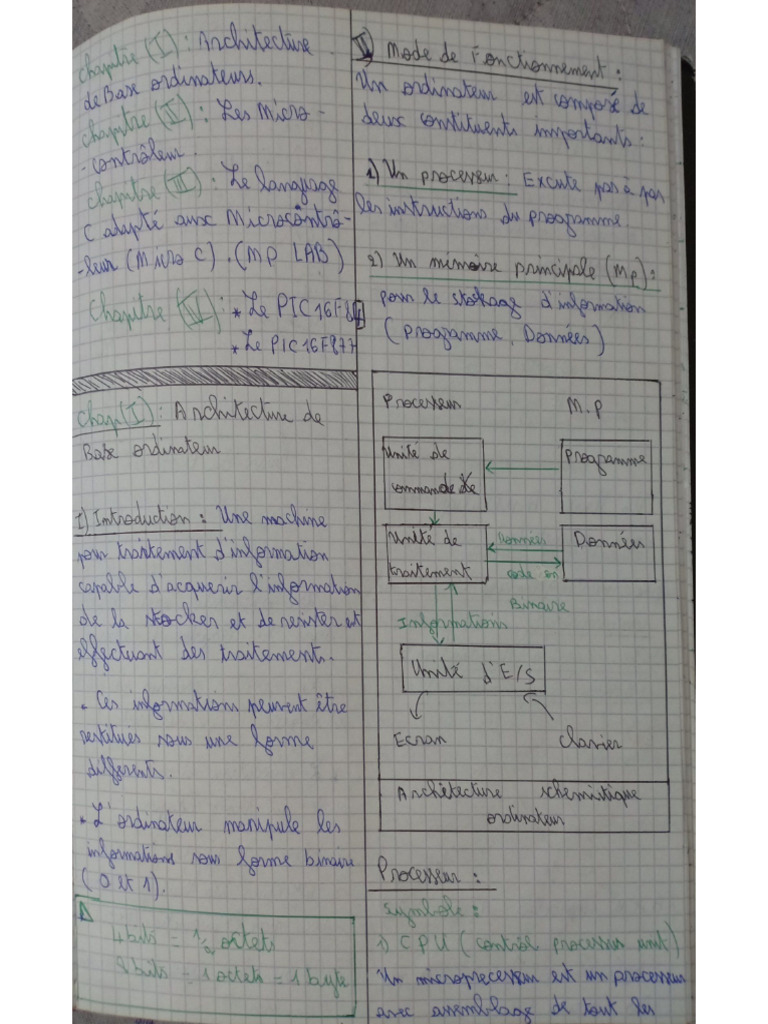 Chapitre (I) : Architecture
de Base ordinateurs.
Chapitre (II) : Les Micro-
-contrôleur.
Chapitre (III) : Le langage
C adapté aux Microcontrô-
-leur (Micro C). (MP LAB)
Chapitre (IV) : * Le PIC16F84
* Le PIC16F877
Chap(I) : Architecture de
Base ordinateur
I) Introduction : Une machine
pour traitement d'information
capable d'acquerir l'information
de la stocker et de et
effectuant des traitements.
• Ces informations peuvent être
restitués sous une forme
differents.
• L'ordinateur manipule les
informations sous forme binaire
(0 et 1).
4bits = 1/2 octets
8bits = 1 octets = 1 byte
II) Mode de Fonctionnement :
Un ordinateur est composé de
deux constituents importants :
1) Un processeur : Excute pas à pas
les instructions du programme.
2) Un mémoire principale (Mp) :
pour le stokage d'information
(programme, Données)
Processeur M.P
Unité de
commande de
Programme
Unité de
traitement
Données
code en
Binaire
Données
Informations
Unité d'E/S
Ecran Clavier
Architecture schemistique
ordinateur
Processeur :
Symbole :
1) CPU (control processus unit)
Un microprecesseur est un processeur
avec assemblage de tout les